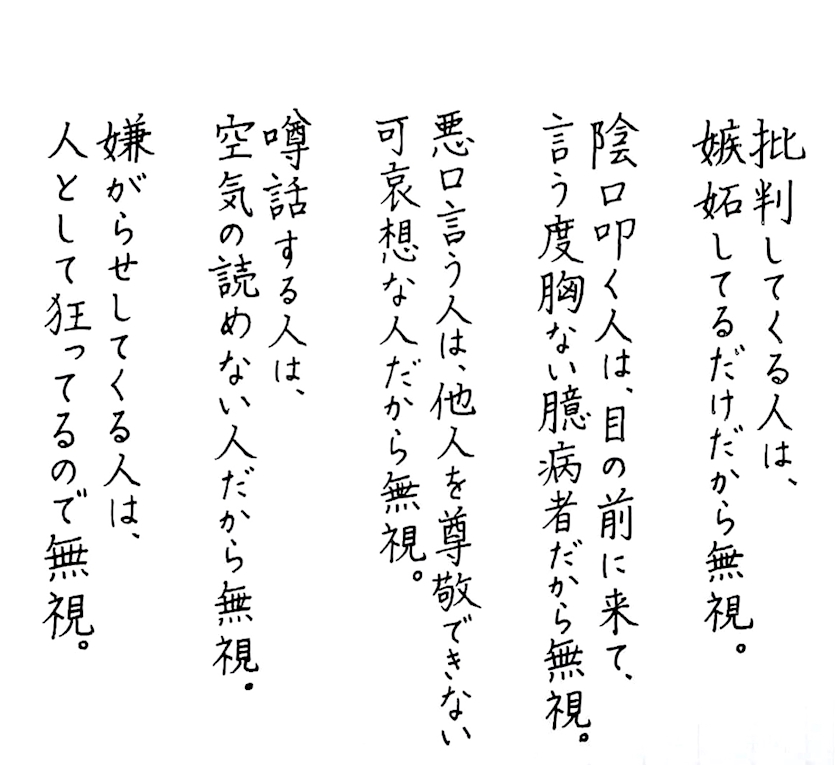 批判してくる人は、
嫉妬してるだけだから無視。
陰口叩く人は、目の前に来て、
言う度胸ない臆病者だから無視。
悪口言う人は、他人を尊敬できない
可哀想な人だから無視。
噂話する人は、
空気の読めない人だから無視.
嫌がらせしてくる人は、
人として狂ってるので無視。